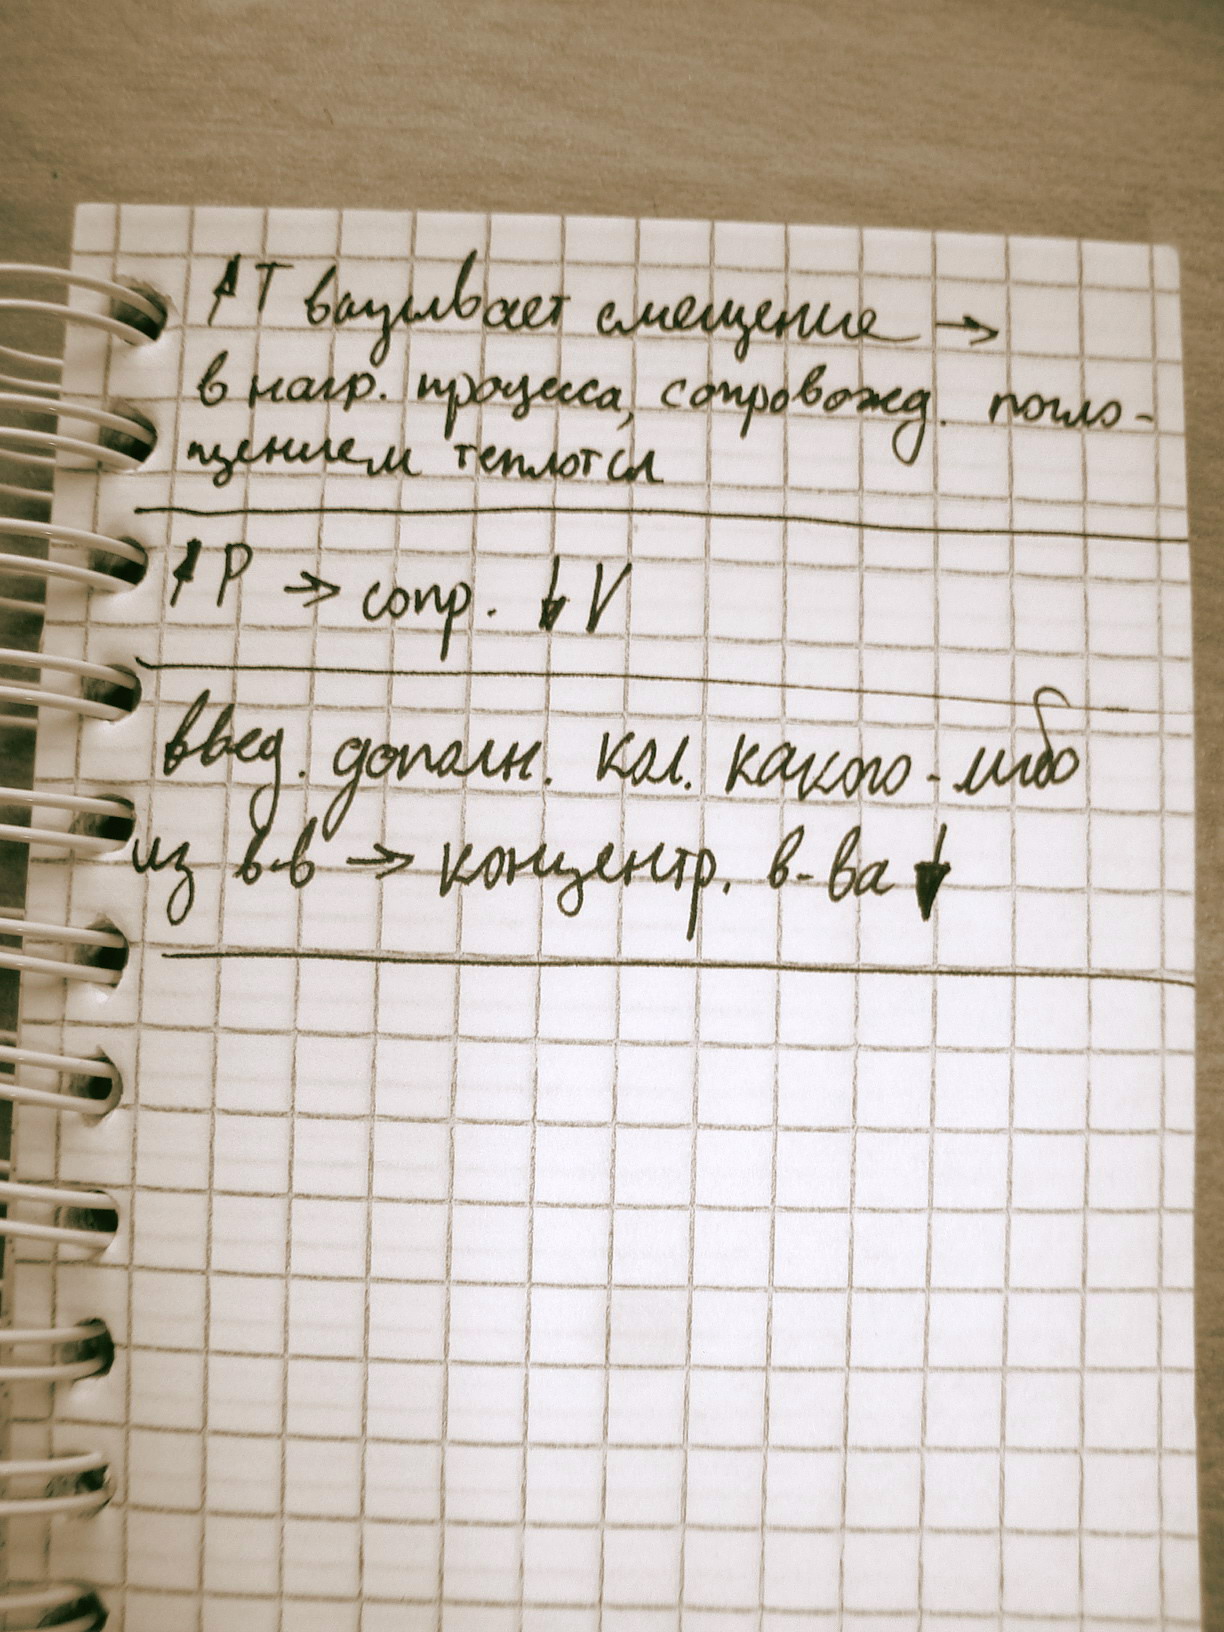 ↑T вызывает смещение →
в напр. процесса, сопровожд. погло-
щением теплоты
↑P → сопр. ↓V
введ. дополн. кол. какого-либо
из в-в → концентр. в-ва ↓